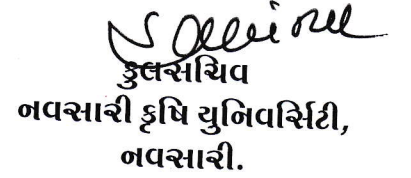 કુલસચિવ
નવસારી કૃષિ યુનિવર્સિટી,
નવસારી.